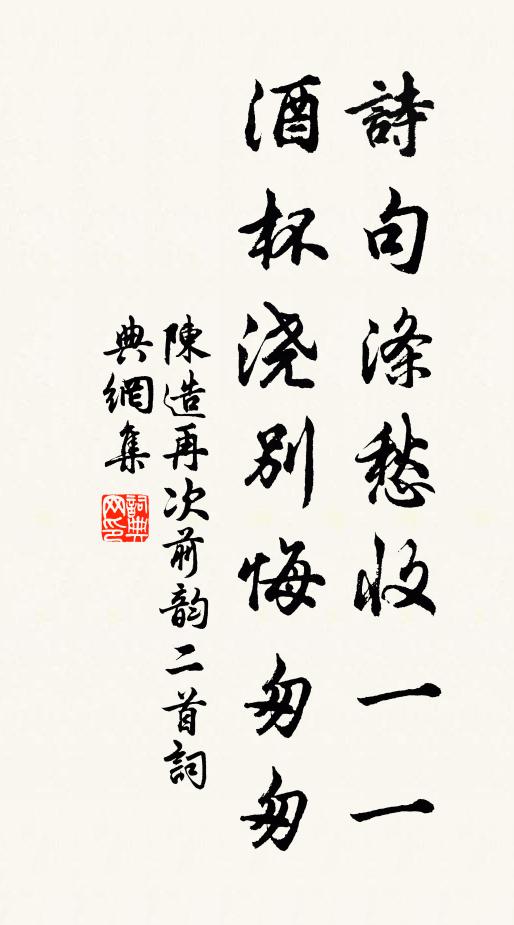 詩句滌愁收一一
酒杯浇別悔匆匆
陳造再次前韵二首詞
典網集
詞典網印